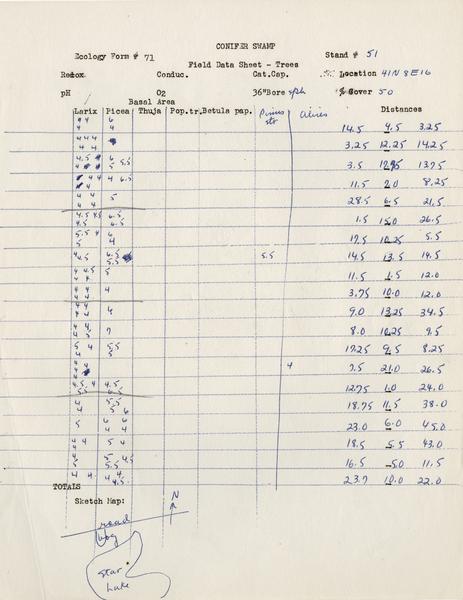 CONIFER SWAMP
Ecology Form # 71 Stand # 51
Field Data Sheet - Trees
Redox. Conduc. Cat.Cap. Location 41N 8E16
pH O2 36"Bore sph % Cover 50
Basal Area
Larix Picea Thuja Pop.tr. Betula pap. Pinus str Distances
4 4 6
4 4 14.5 4.5 3.25
4 4 4
4 4 3.25 12.25 14.25
4.5 6 5.5
4 5 3.5 13.75
4 4 4 6.5
4 11.5 7.0 8.25
4 4 5
4 4 28.5 6.5 21.5
4.5 4.5 6.5
4.5 6.5 1.5 15.0 26.5
5.5 4 6
5 4 17.5 10.25 5.5
4 4.5 6.5
5.5 5.5 14.5 13.5 14.5
4 4.5 5
4 4 11.5 1.5 12.0
4 4 4
4 4 3.75 10.0 12.0
4 4 4
4 4 9.0 13.25 34.5
4 4 7
4 5 8.0 10.25 9.5
5 4 5.5
4 5 17.25 9.5 8.25
4 4 7.5 21.0 26.5
4.5 4 4.5
5.5 12.75 1.0 24.0
4 5.5
4 5 6 18.75 11.5 38.0
5 6 6
4 4 23.0 6.0 45.0
4 4 5 4
18.5 5.5 43.0
4 5 4.5
5 5.5 16.5 5.0 11.5
4 4 4 4
4.5 23.7 10.0 22.0
TOTALS
Sketch Map: N
road
bog
Star
Lake